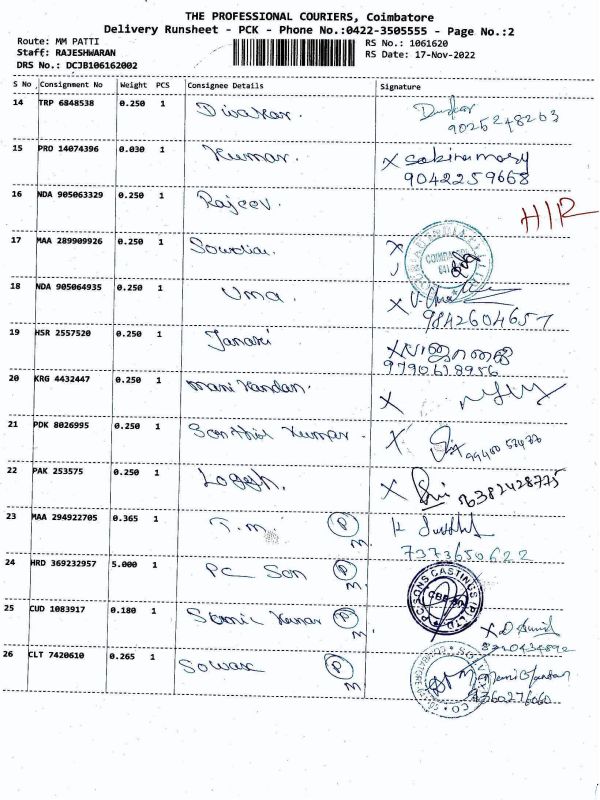 THE PROFESSIONAL COURIERS, Coimbatore
Delivery Runsheet - PCK - Phone No.:0422-3505555 - Page No.:2
Route: MM PATTI
RS No.: 1061620
Staff: RAJESHWARAN
RS Date: 17-Nov-2022
DRS No.: DCJB106162002
S No Consignment No Weight PCS Consignee Details Signature
14 TRP 6848538 0.250 1 Diwakar.
9025248263
15 PRO 14074396 0.030 1 Kumar. X Sabinamary
9042259668
16 NDA 905063329 0.250 1 Rajeev. HIR
17 MAA 289909926 0.250 1 X
18 NDA 905064935 0.250 1 Uma. X
9842604657
19 HSR 2557520 0.250 1 Janaki X
9790618956
20 KRG 4432447 0.250 1 Mani Kandan. X
21 PDK 8026995 0.250 1 Senthil Kumar. X
22 PAK 253575 0.250 1 Logesh. X 6382428775
23 MAA 294922705 0.365 1 T.M. P M
7373650622
24 HRD 369232957 5.000 1 PC Son P M. PCSONS CASTINGS (P) LTD
25 CUD 1083917 0.180 1 Kumar P M. X
26 CLT 7420610 0.265 1 P M
9360276060